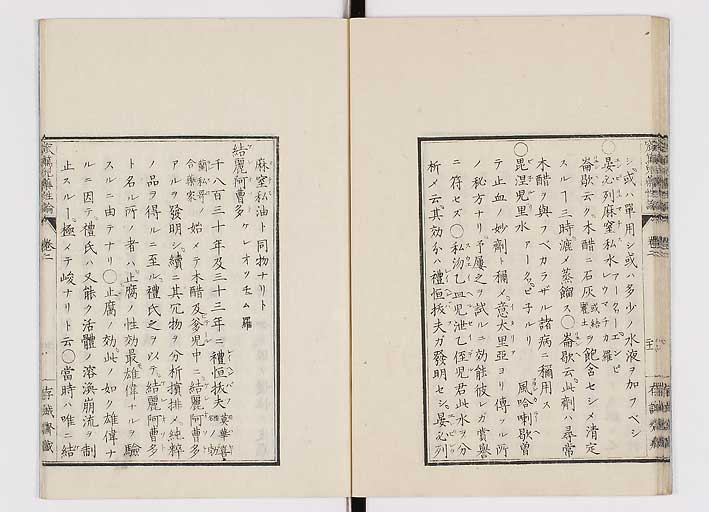 シ或ハ單用シ或ハ多少ノ水液ヲ加フベシ
○晏必列麻窒私水
崙歇云ク木醋ニ石灰ヲ飽含セシメ清定
スルヿ三時漉メ蒸餾ス○崙歇云此劑ハ尋常
木醋ヲ與フベカラザル諸病ニ稱用ス
○毘涅児里水 風哈唎歇曽
テ止血ノ妙劑ト稱ス意太里亞ヨリ傳フル所
ノ秘方ナリ予屢之ヲ試ルニ効能彼レガ賞譽
ニ符セズ○私沕乙血児泄乙侄児君此水ヲ分
析メ云其効分ハ禮恒抜夫ガ發明セシ晏必列
麻窒私油ト同物ナリト
結麗阿曹多 ケレオソチュム 羅
千八百三十年及三十三年ニ禮恒抜夫
始メテ木醋及爹児中ニ結麗阿曹多
アルヲ發明シ續ニ其冗物ヲ分析擯排メ純粹
ノ品ヲ得ルニ至ル禮氏之ヲ以テ結麗阿曹多
ト名ル所ノ者ハ止腐ノ性効最雄偉ナルヲ驗
スルニ由テナリ○止腐ノ効此ノ如ク雄偉ナ
ルニ因テ禮氏ハ又能ク活體ノ溶渙崩流ヲ制
止スルヿ極メテ峻ナリト云○當時ハ唯ニ結
卷二